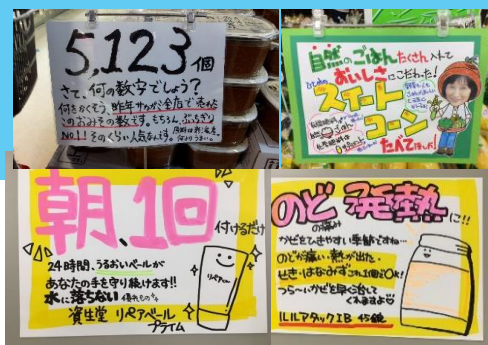 5,123個
さて、何の数字でしょう?
何をかくそう、昨年サカガミ全店で売れた
このおみその数です。もちろん、ぶっちぎり
No.1!! そのくらい人気なんです。
自然のごはんたくさん入れて
おいしさにこだわった!
スイート
コーン
たべてほしい!
朝、1回
付けるだけ
24時間、うるおいベールが
あなたの手を守り続けます!!
水に落ちない
リペアベール
資生堂 リペアベール
プライム
のど 発熱に!!
の痛み
かぜをひきやすい季節ですね…
のどが痛い・熱が出た、
せき・はなみずこれ1個でOK!
つら〜いかぜを早く治して
くれますよ
ルルアタックIB 45錠